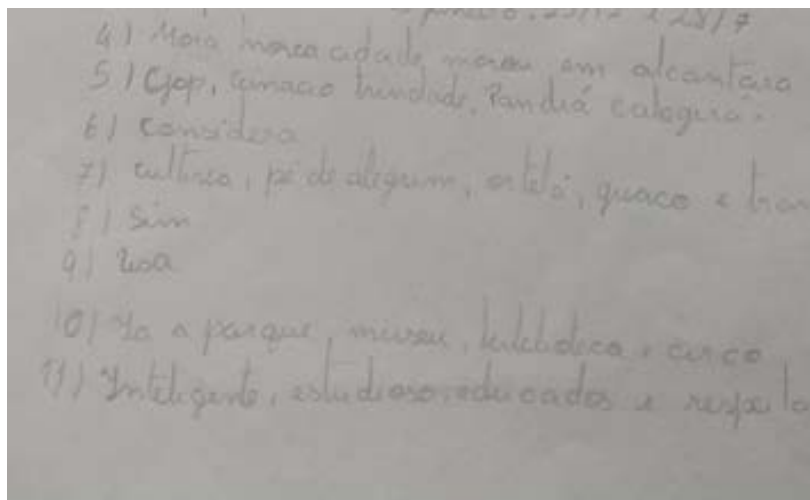 25/12 e 25/7
4) Mora nessa cidade morou em alcantara
5) Cjop, trindade, Pandiá calogera.
6) Considera
7) cultiva, pé de alegrim, ortelã, guaco e
8) Sim
9) Usa
10) Ia a parque, museu, bibliboteca, circo
11) Inteligente, estudioso, educados e respeito